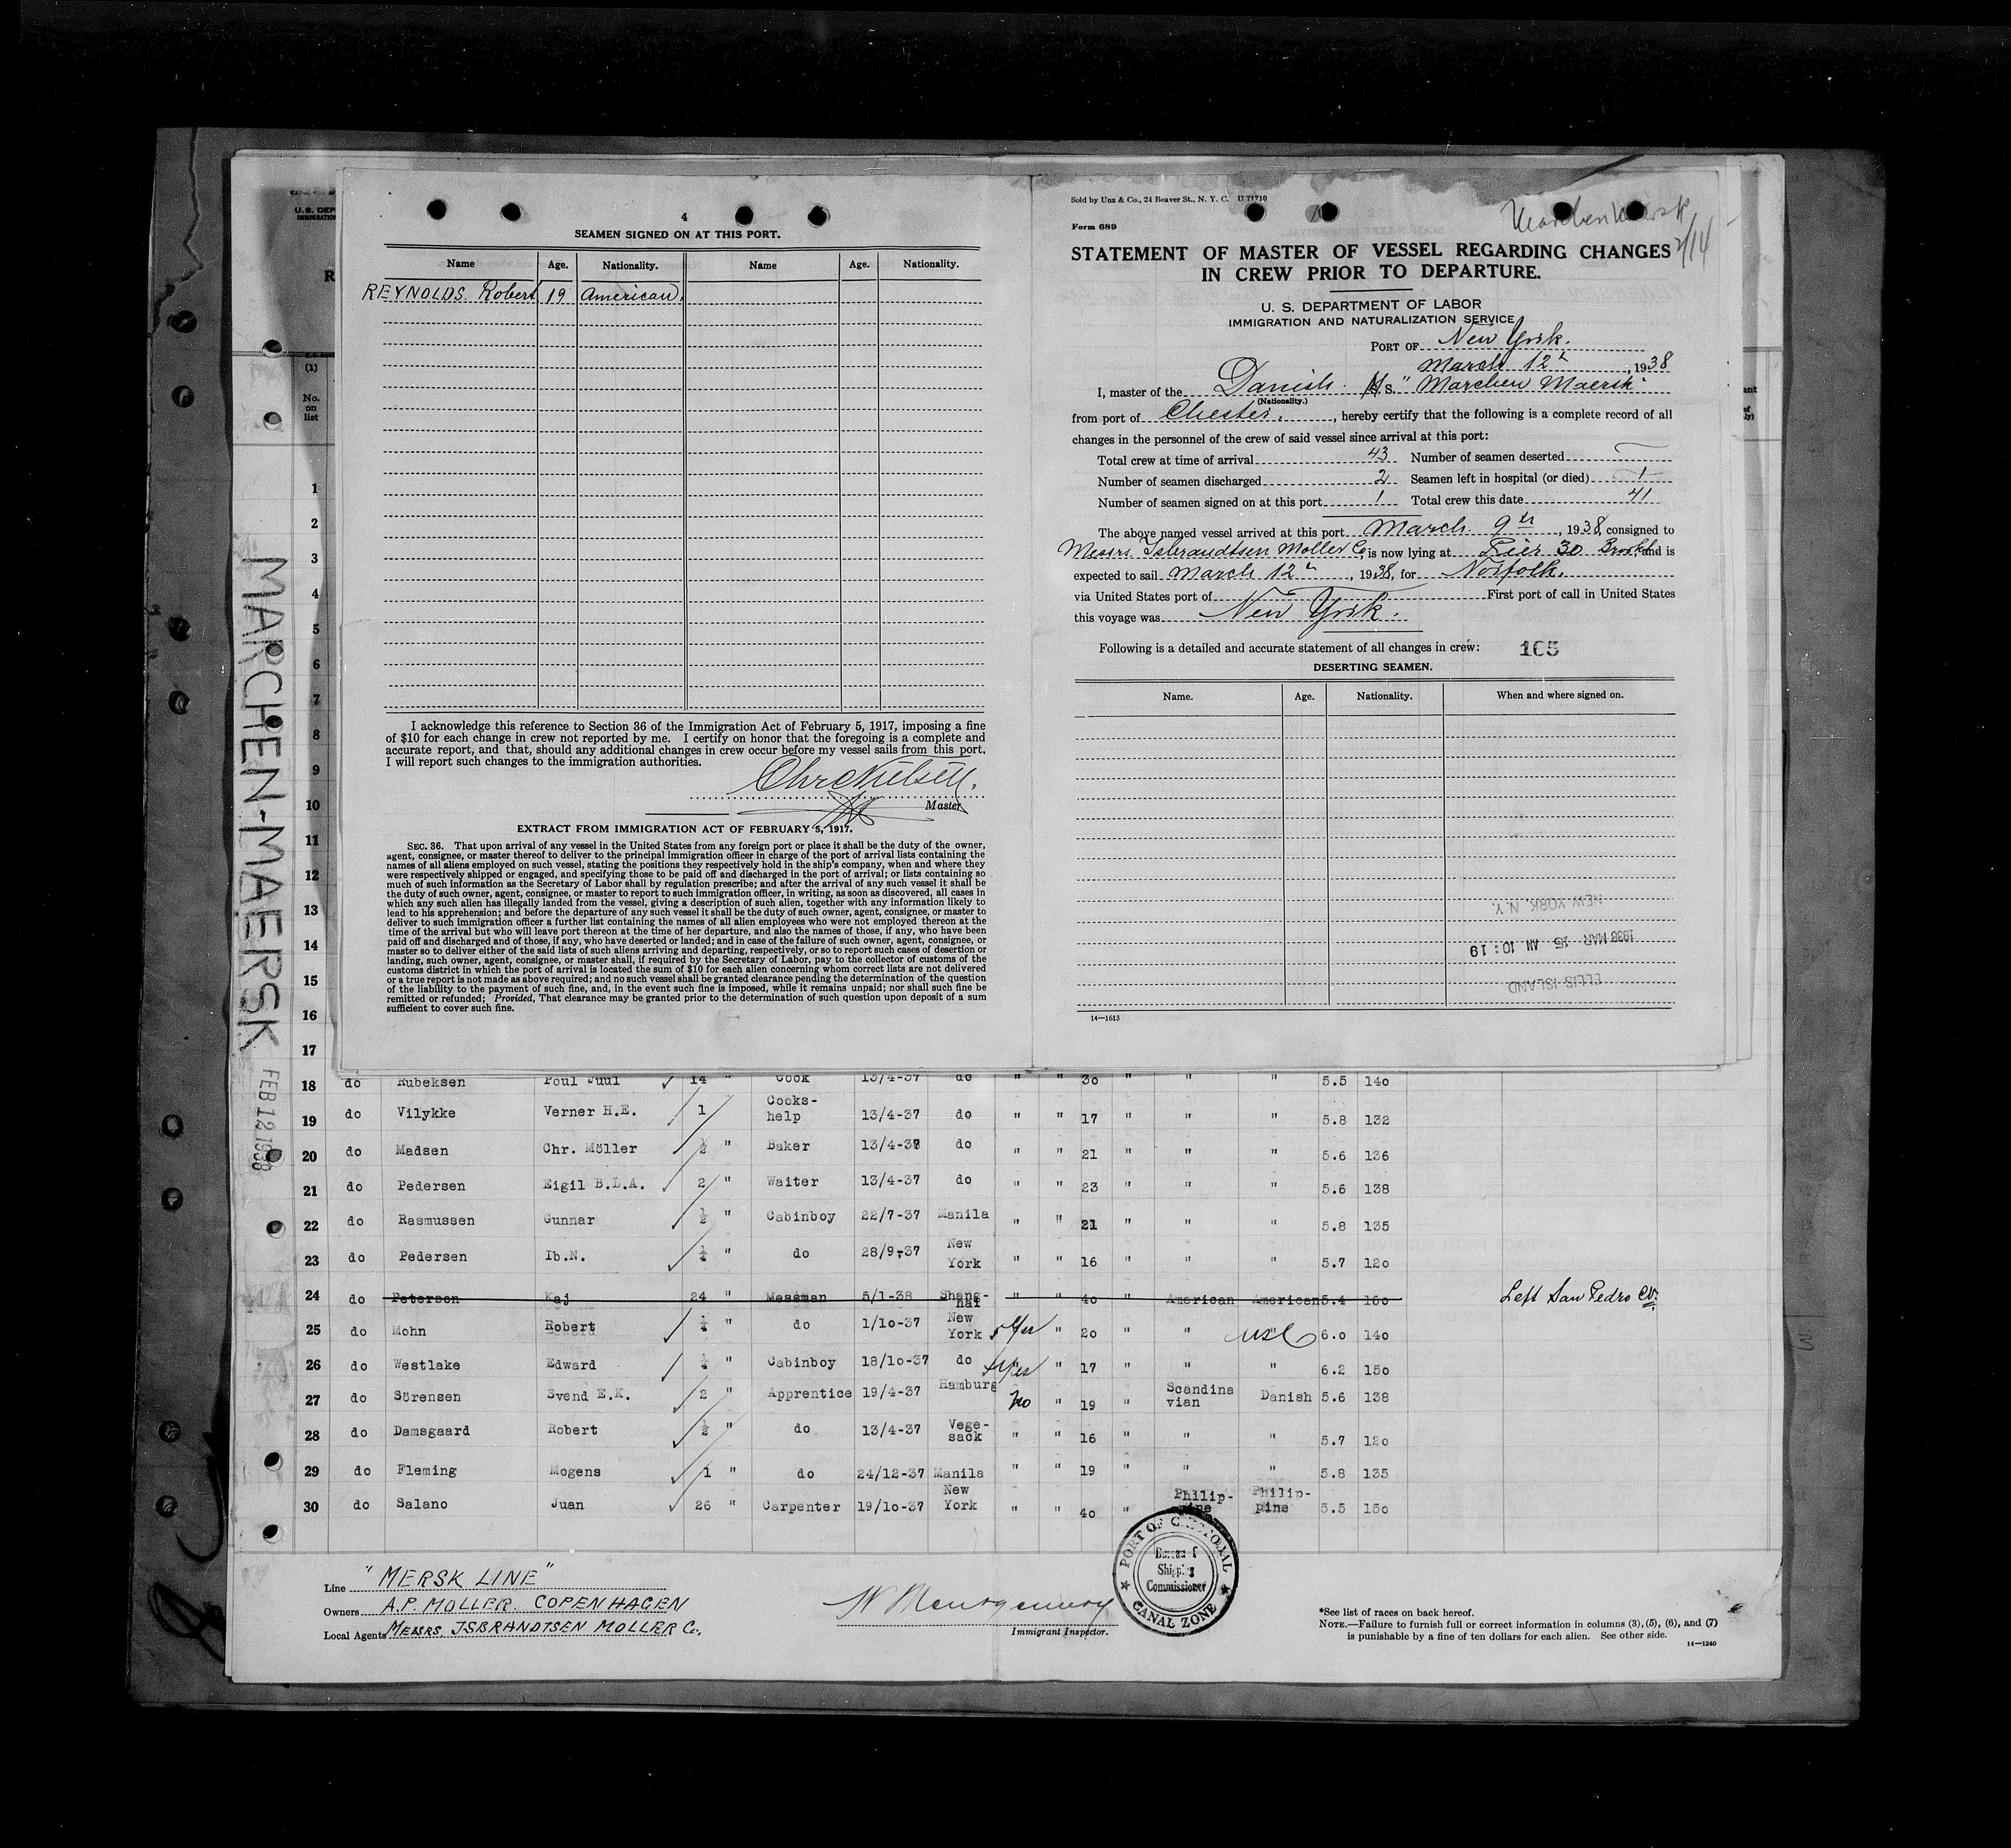 4
SEAMEN SIGNED ON AT THIS PORT.
Name Age. Nationality. Name Age. Nationality.
REYNOLDS. Robert 19 American.
I acknowledge this reference to Section 36 of the Immigration Act of February 5, 1917, imposing a fine
of $10 for each change in crew not reported by me. I certify on honor that the foregoing is a complete and
accurate report, and that, should any additional changes in crew occur before my vessel sails from this port,
I will report such changes to the immigration authorities.
Chr Nielsen.
Master
EXTRACT FROM IMMIGRATION ACT OF FEBRUARY 5, 1917.
SEC. 36. That upon arrival of any vessel in the United States from any foreign port or place it shall be the duty of the owner,
agent, consignee, or master thereof to deliver to the principal immigration officer in charge of the port of arrival lists containing the
names of all aliens employed on such vessel, stating the positions they respectively hold in the ship's company, when and where they
were respectively shipped or engaged, and specifying those to be paid off and discharged in the port of arrival; or lists containing so
much of such information as the Secretary of Labor shall by regulation prescribe; and after the arrival of any such vessel it shall be
the duty of such owner, agent, consignee, or master to report to such immigration officer, in writing, as soon as discovered, all cases in
which any such alien has illegally landed from the vessel, giving a description of such alien, together with any information likely to
lead to his apprehension; and before the departure of any such vessel it shall be the duty of such owner, agent, consignee, or master to
deliver to such immigration officer a further list containing the names of all alien employees who were not employed thereon at the
time of the arrival but who will leave port thereon at the time of her departure, and also the names of those, if any, who have been
paid off and discharged and of those, if any, who have deserted or landed; and in case of the failure of such owner, agent, consignee, or
master so to deliver either of the said lists of such aliens arriving and departing, respectively, or so to report such cases of desertion or
landing, such owner, agent, consignee, or master shall, if required by the Secretary of Labor, pay to the collector of customs of the
customs district in which the port of arrival is located the sum of $10 for each alien concerning whom correct lists are not delivered
or a true report is not made as above required; and no such vessel shall be granted clearance pending the determination of the question
of the liability to the payment of such fine, and, in the event such fine is imposed, while it remains unpaid; nor shall such fine be
remitted or refunded; Provided, That clearance may be granted prior to the determination of such question upon deposit of a sum
sufficient to cover such fine.
Sold by Unz & Co., 24 Beaver St., N. Y. C. U 71710
Form 689
STATEMENT OF MASTER OF VESSEL REGARDING CHANGES
IN CREW PRIOR TO DEPARTURE.
U. S. DEPARTMENT OF LABOR
IMMIGRATION AND NATURALIZATION SERVICE
PORT OF New York.
March 12th, 1938
I, master of the Danish M.S. "Marchen Maersk"
(Nationality.)
from port of Chester, hereby certify that the following is a complete record of all
changes in the personnel of the crew of said vessel since arrival at this port:
Total crew at time of arrival 43 Number of seamen deserted
Number of seamen discharged 2 Seamen left in hospital (or died) 1
Number of seamen signed on at this port 1 Total crew this date 41
The above named vessel arrived at this port March 9th, 1938, consigned to
Messrs Isbrandtsen Moller Co is now lying at Pier 30 Brookl and is
expected to sail March 12th, 1938, for Norfolk.
via United States port of First port of call in United States
this voyage was New York.
Following is a detailed and accurate statement of all changes in crew: 165
DESERTING SEAMEN.
Name. Age. Nationality. When and where signed on.
NEW YORK, N.Y.
1938 MAR 15 AM 10:19
ELLIS ISLAND
14—1613
MARCHEN-MAERSK FEB 12 1938
U.S. DEP
IMMIGRATION
R
(1)
No. on list
1
2
3
4
5
6
7
8
9
10
11
12
13
14
15
16
17
18 do Rubeksen Poul Juul 14 " Cook 13/4-37 do " " 30 " " " 5.5 140
19 do Vilykke Verner H.E. 1 Cooks-help 13/4-37 do " " 17 " " " 5.8 132
20 do Madsen Chr. Möller ½ " Baker 13/4-38 do " " 21 " " " 5.6 136
21 do Pedersen Eigil B.L.A. 2 " Waiter 13/4-37 do " " 23 " " " 5.6 138
22 do Rasmussen Gunnar ½ " Cabinboy 22/7-37 Manila " " 21 " " " 5.8 135
23 do Pedersen Ib.N. ¼ " do 28/9-37 New York " " 16 " " " 5.7 120
24 do Peterson Kaj 24 " Messman 5/1-38 Shang-hai " " 40 " American American 5.4 160 Left San Pedro
25 do Mohn Robert ¼ " do 1/10-37 New York Yes " 20 " " USC 6.0 140
26 do Westlake Edward ¼ " Cabinboy 18/10-37 do Yes " 17 " " " 6.2 150
27 do Sörensen Svend E.K. 2 " Apprentice 19/4-37 Hamburg no " 19 " Scandina vian Danish 5.6 138
28 do Damsgaard Robert ½ " do 13/4-37 Vege-sack " " 16 " " " 5.7 120
29 do Fleming Mogens 1 " do 24/12-37 Manila " " 19 " " " 5.8 135
30 do Salano Juan 26 " Carpenter 19/10-37 New York " " 40 " Philip-pine Philip-pine 5.5 150
Line "MERSK LINE"
Owners A.P. MOLLER. COPENHAGEN
Local Agents MESSRS. JSBRANDTSEN MOLLER Co,
N Montgomery
Immigrant Inspector.
PORT OF CRISTOBAL
Bureau of
Shipping
Commissioner
CANAL ZONE
*See list of races on back hereof.
NOTE.—Failure to furnish full or correct information in columns (3), (5), (6), and (7)
is punishable by a fine of ten dollars for each alien. See other side.
14—1240